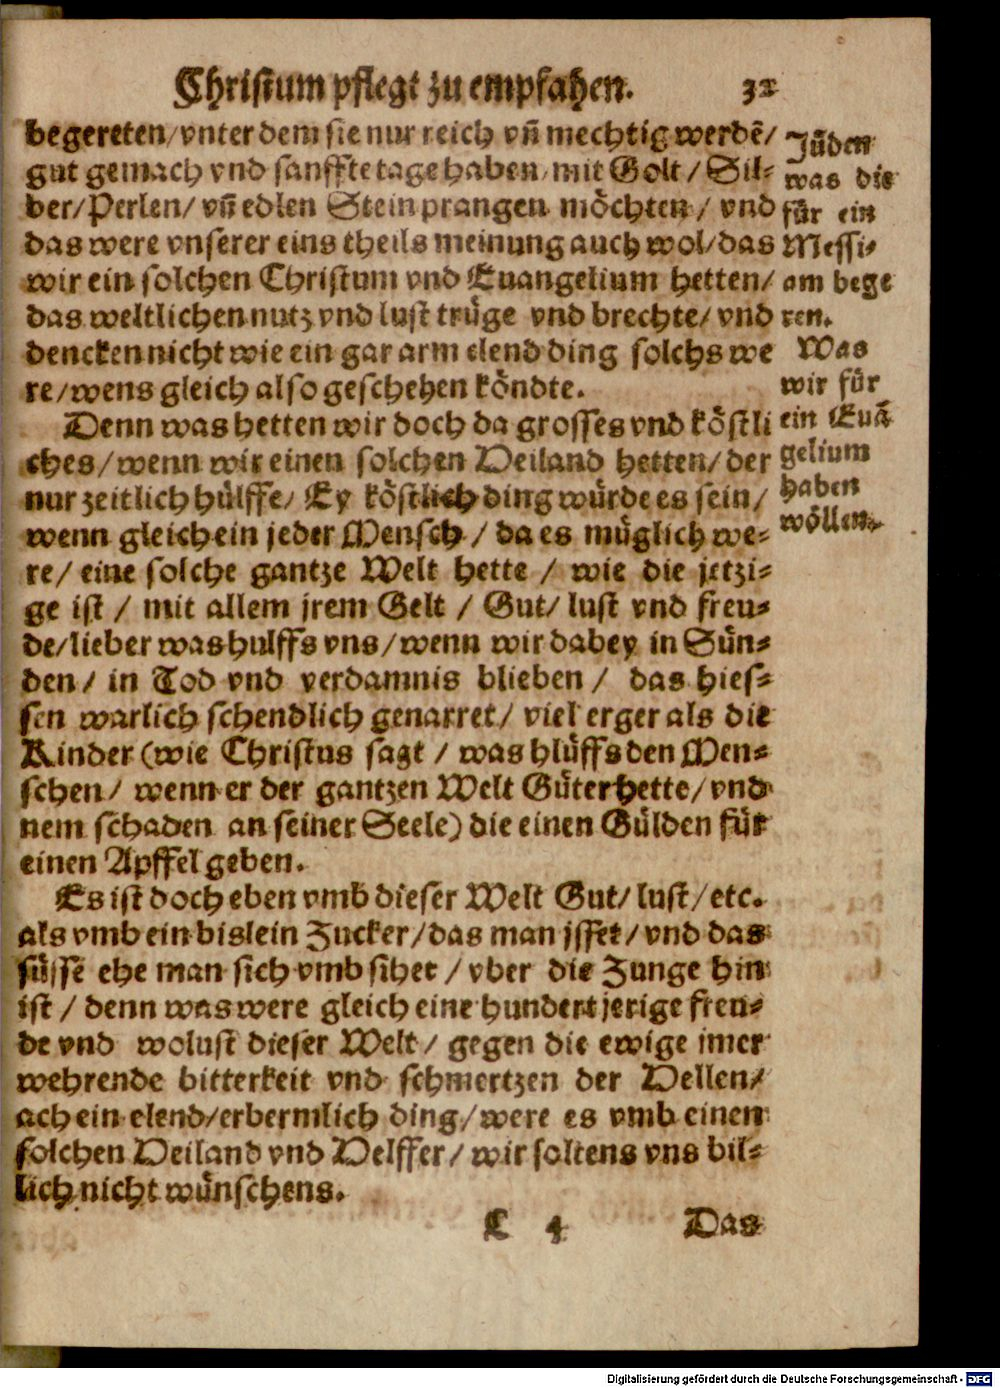 Christum pflegt zu empfahen. 32
begereten/vnter dem sie nur reich vñ mechtig werdē/
gut gemach vnd sanffte tage haben/mit Golt/Sil-
ber/Perlen/vñ edlen Stein prangen möchten/vnd
das were vnserer eins theils meinung auch wol/das
wir ein solchen Christum vnd Euangelium hetten/
das weltlichen nutz vnd lust trüge vnd brechte/vnd
dencken nicht wie ein gar arm elend ding solchs we
re/wens gleich also geschehen köndte.
Denn was hetten wir doch da grosses vnd köstli
ches/wenn wir einen solchen Heiland hetten/der
nur zeitlich hülffe/Ey köstlich ding würde es sein/
wenn gleich ein jeder Mensch/da es müglich we-
re/eine solche gantze Welt hette/wie die jetzi-
ge ist/mit allem jrem Gelt/Gut/lust vnd freu-
de/lieber was hulffs vns/wenn wir dabey in Sün-
den/in Tod vnd verdamnis blieben/das hies-
sen warlich schendlich genarret/viel erger als die
Kinder (wie Christus sagt/was hlüffs den Men-
schen/wenn er der gantzen Welt Güter hette/vnd
nem schaden an seiner Seele) die einen Gülden für
einen Apffel geben.
Es ist doch eben vmb dieser Welt Gut/lust/etc.
als vmb ein bislein Zucker/das man jsset/vnd das
süsse ehe man sich vmb sihet/vber die Zunge hin
ist/denn was were gleich eine hundert jerige freu-
de vnd wolust dieser Welt/gegen die ewige imer
wehrende bitterkeit vnd schmertzen der Hellen/
ach ein elend/erbermlich ding/were es vmb einen
solchen Heiland vnd Helffer/wir soltens vns bil-
lich nicht wünschens.
C 4 Das
Jüden
was die
für ein
Messi-
am bege
ren.
Was
wir für
ein Euā
gelium
haben
wöllen.
Digitalisierung gefördert durch die Deutsche Forschungsgemeinschaft - DFG